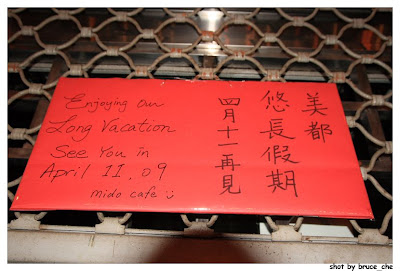 Enjoying Our
Long Vacation
See You in
April 11, 09
mido cafe
美都
悠長假期
四月十一再見
shot by bruce_che